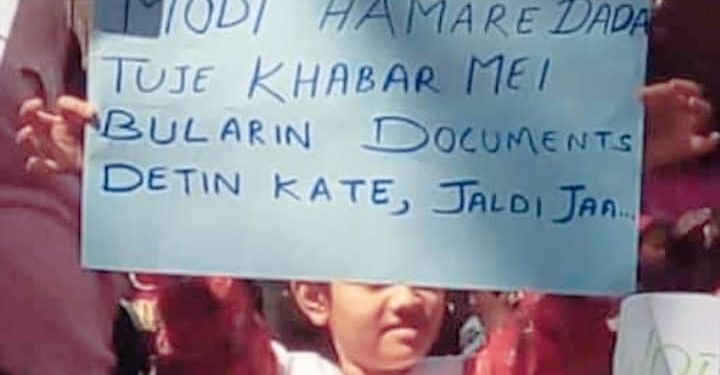 MODI HAMARE DADA
TUJE KHABAR MEI
BULARIN DOCUMENTS
DETIN KATE, JALDI JAA...